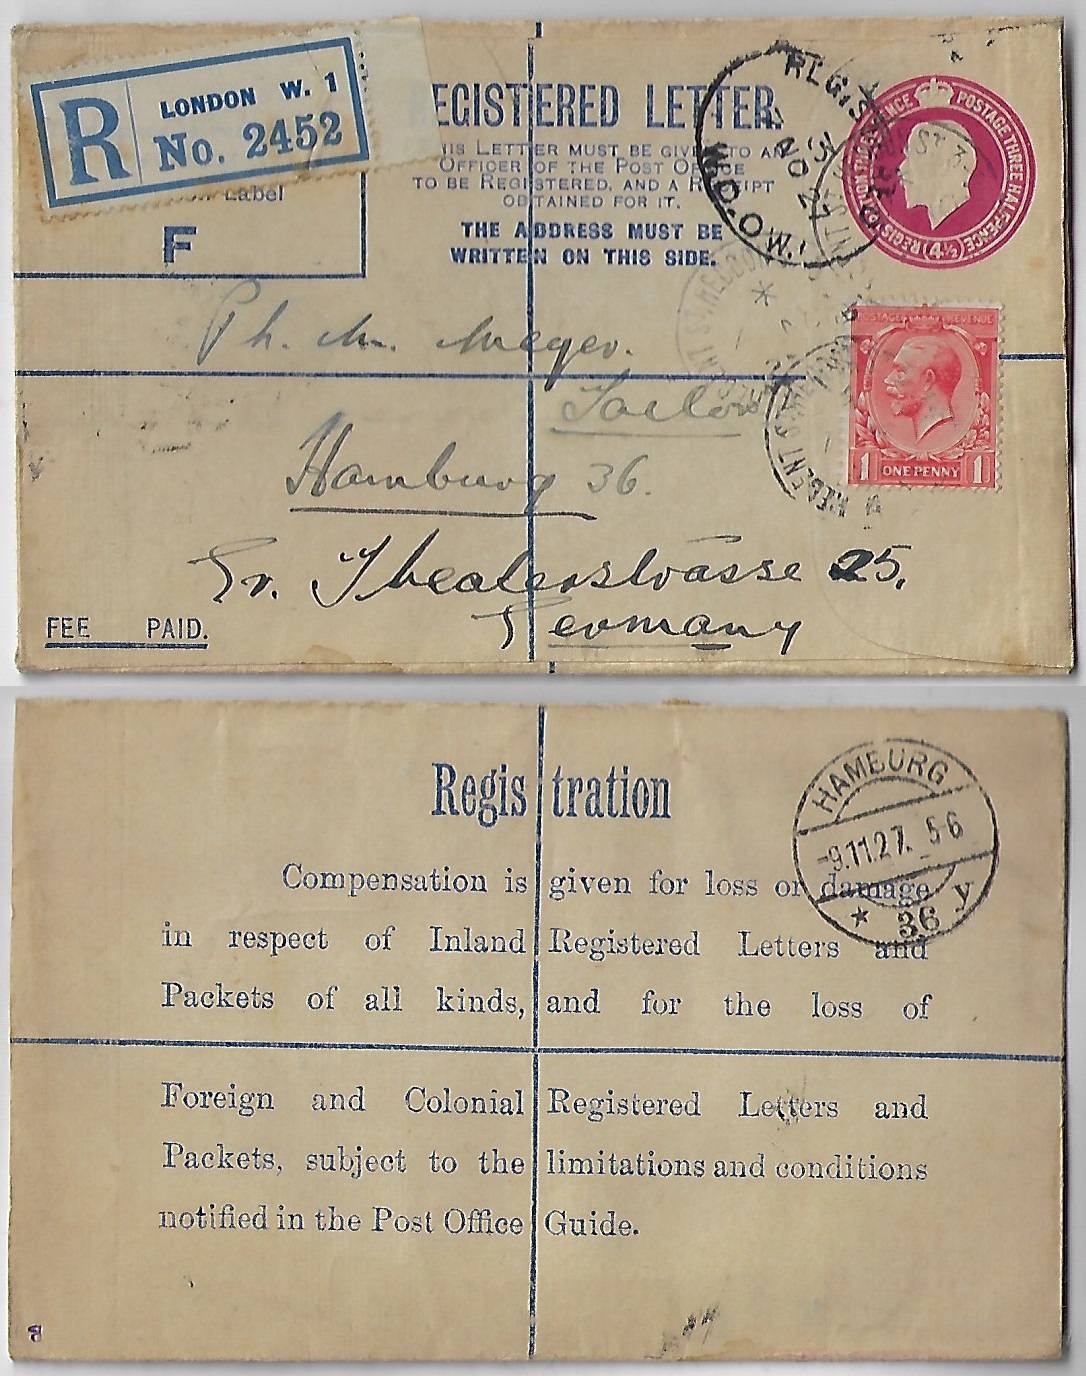 R LONDON W. 1
No. 2452
Label
F
REGISTERED LETTER.
THIS LETTER MUST BE GIVEN TO AN
OFFICER OF THE POST OFFICE
TO BE REGISTERED, AND A RECEIPT
OBTAINED FOR IT.
THE ADDRESS MUST BE
WRITTEN ON THIS SIDE.
POSTAGE THREE HALF-PENCE
4½
POSTAGE REVENUE
1 ONE PENNY 1
Ph. M. Meyer.
Tailor
Hamburg 36.
Gr. Theaterstrasse 25.
Germany
FEE PAID.
Registration
HAMBURG
-9.11.27. 5-6
* 36 y
Compensation is given for loss or damage
in respect of Inland Registered Letters and
Packets of all kinds, and for the loss of
Foreign and Colonial Registered Letters and
Packets, subject to the limitations and conditions
notified in the Post Office Guide.